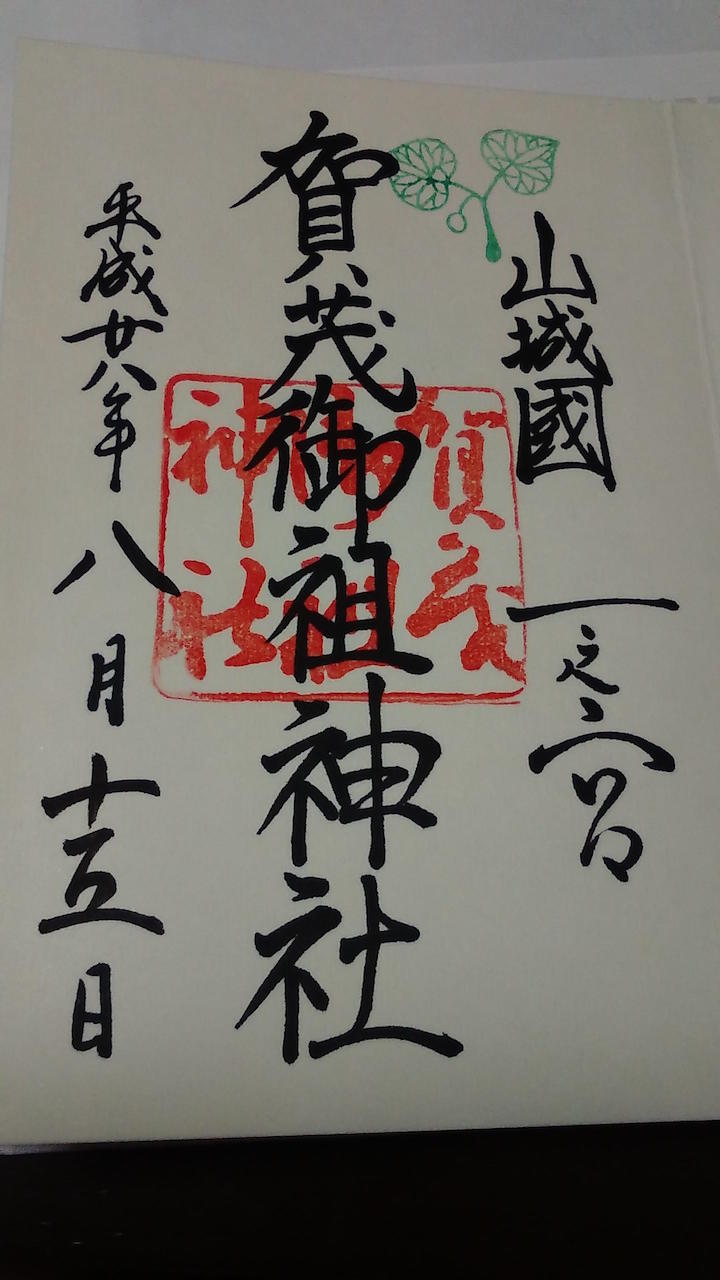 山城國 一之宮
賀茂御祖神社
平成廿八年 八月十五日
賀茂
御祖
神社